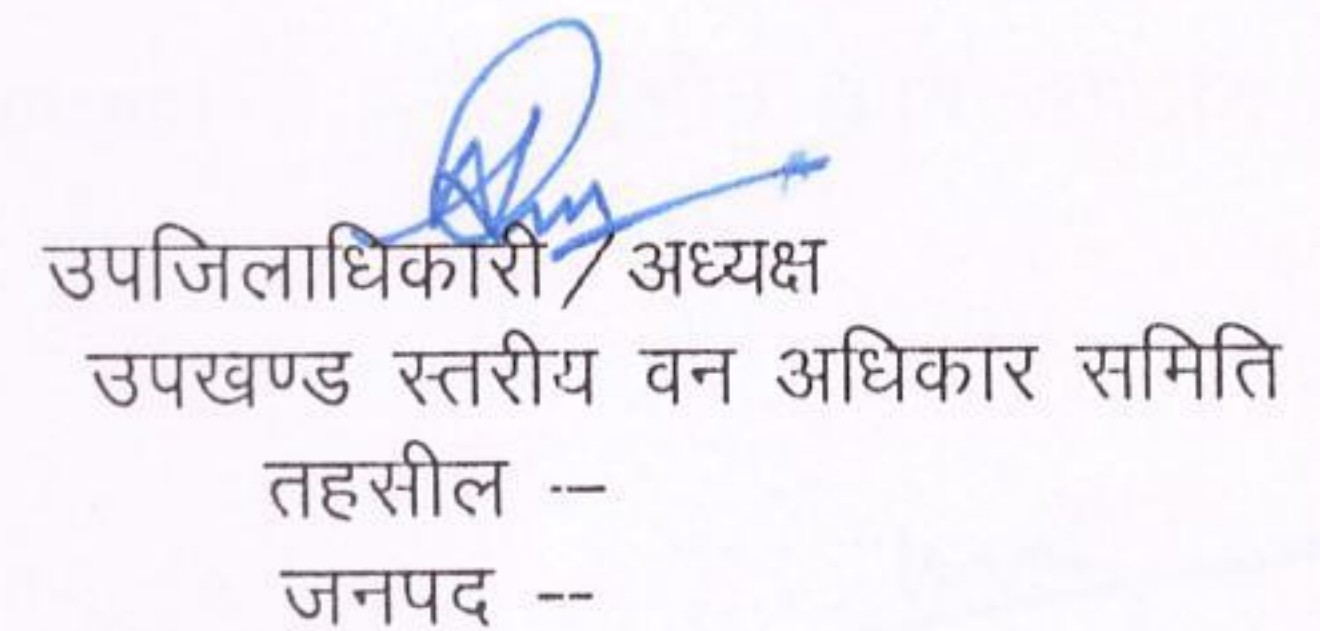 उपजिलाधिकारी / अध्यक्ष
उपखण्ड स्तरीय वन अधिकार समिति
तहसील --
जनपद --